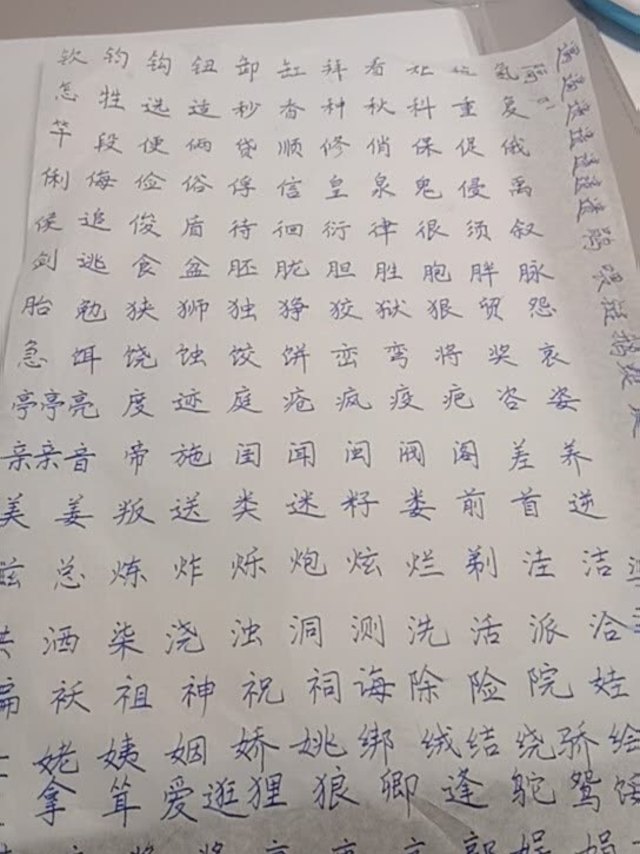 钦 钧 钩 钮 卸 缸 拜 看 氢
怎 牲 选 适 秒 香 种 秋 科 重 复
竿 段 便 俩 贷 顺 修 俏 保 促 俄
俐 侮 俭 俗 俘 信 皇 泉 鬼 侵 禹
侯 追 俊 盾 待 徊 衍 律 很 须 叙
剑 逃 食 盆 胚 胧 胆 胜 胞 胖 脉
胎 勉 狭 狮 独 狰 狡 狱 狠 贸 怨
急 饵 饶 蚀 饺 饼 峦 弯 将 奖 哀
亭 亭 亮 度 迹 庭 疮 疯 疫 疤 咨 姿
亲 亲 音 帝 施 闺 闻 闽 阀 阁 差 养
美 姜 叛 送 类 迷 籽 娄 前 首 逆
兹 总 炼 炸 烁 炮 炫 烂 剃 洼 洁
洪 洒 柒 浇 浊 洞 测 洗 活 派 洽
扁 袄 祖 神 祝 祠 诲 除 险 院 娃
姥 姨 姻 娇 姚 绑 绒 结 绕 骄 绘
拿 耸 爱 逛 狸 狼 卿 逢 鸵 鸳